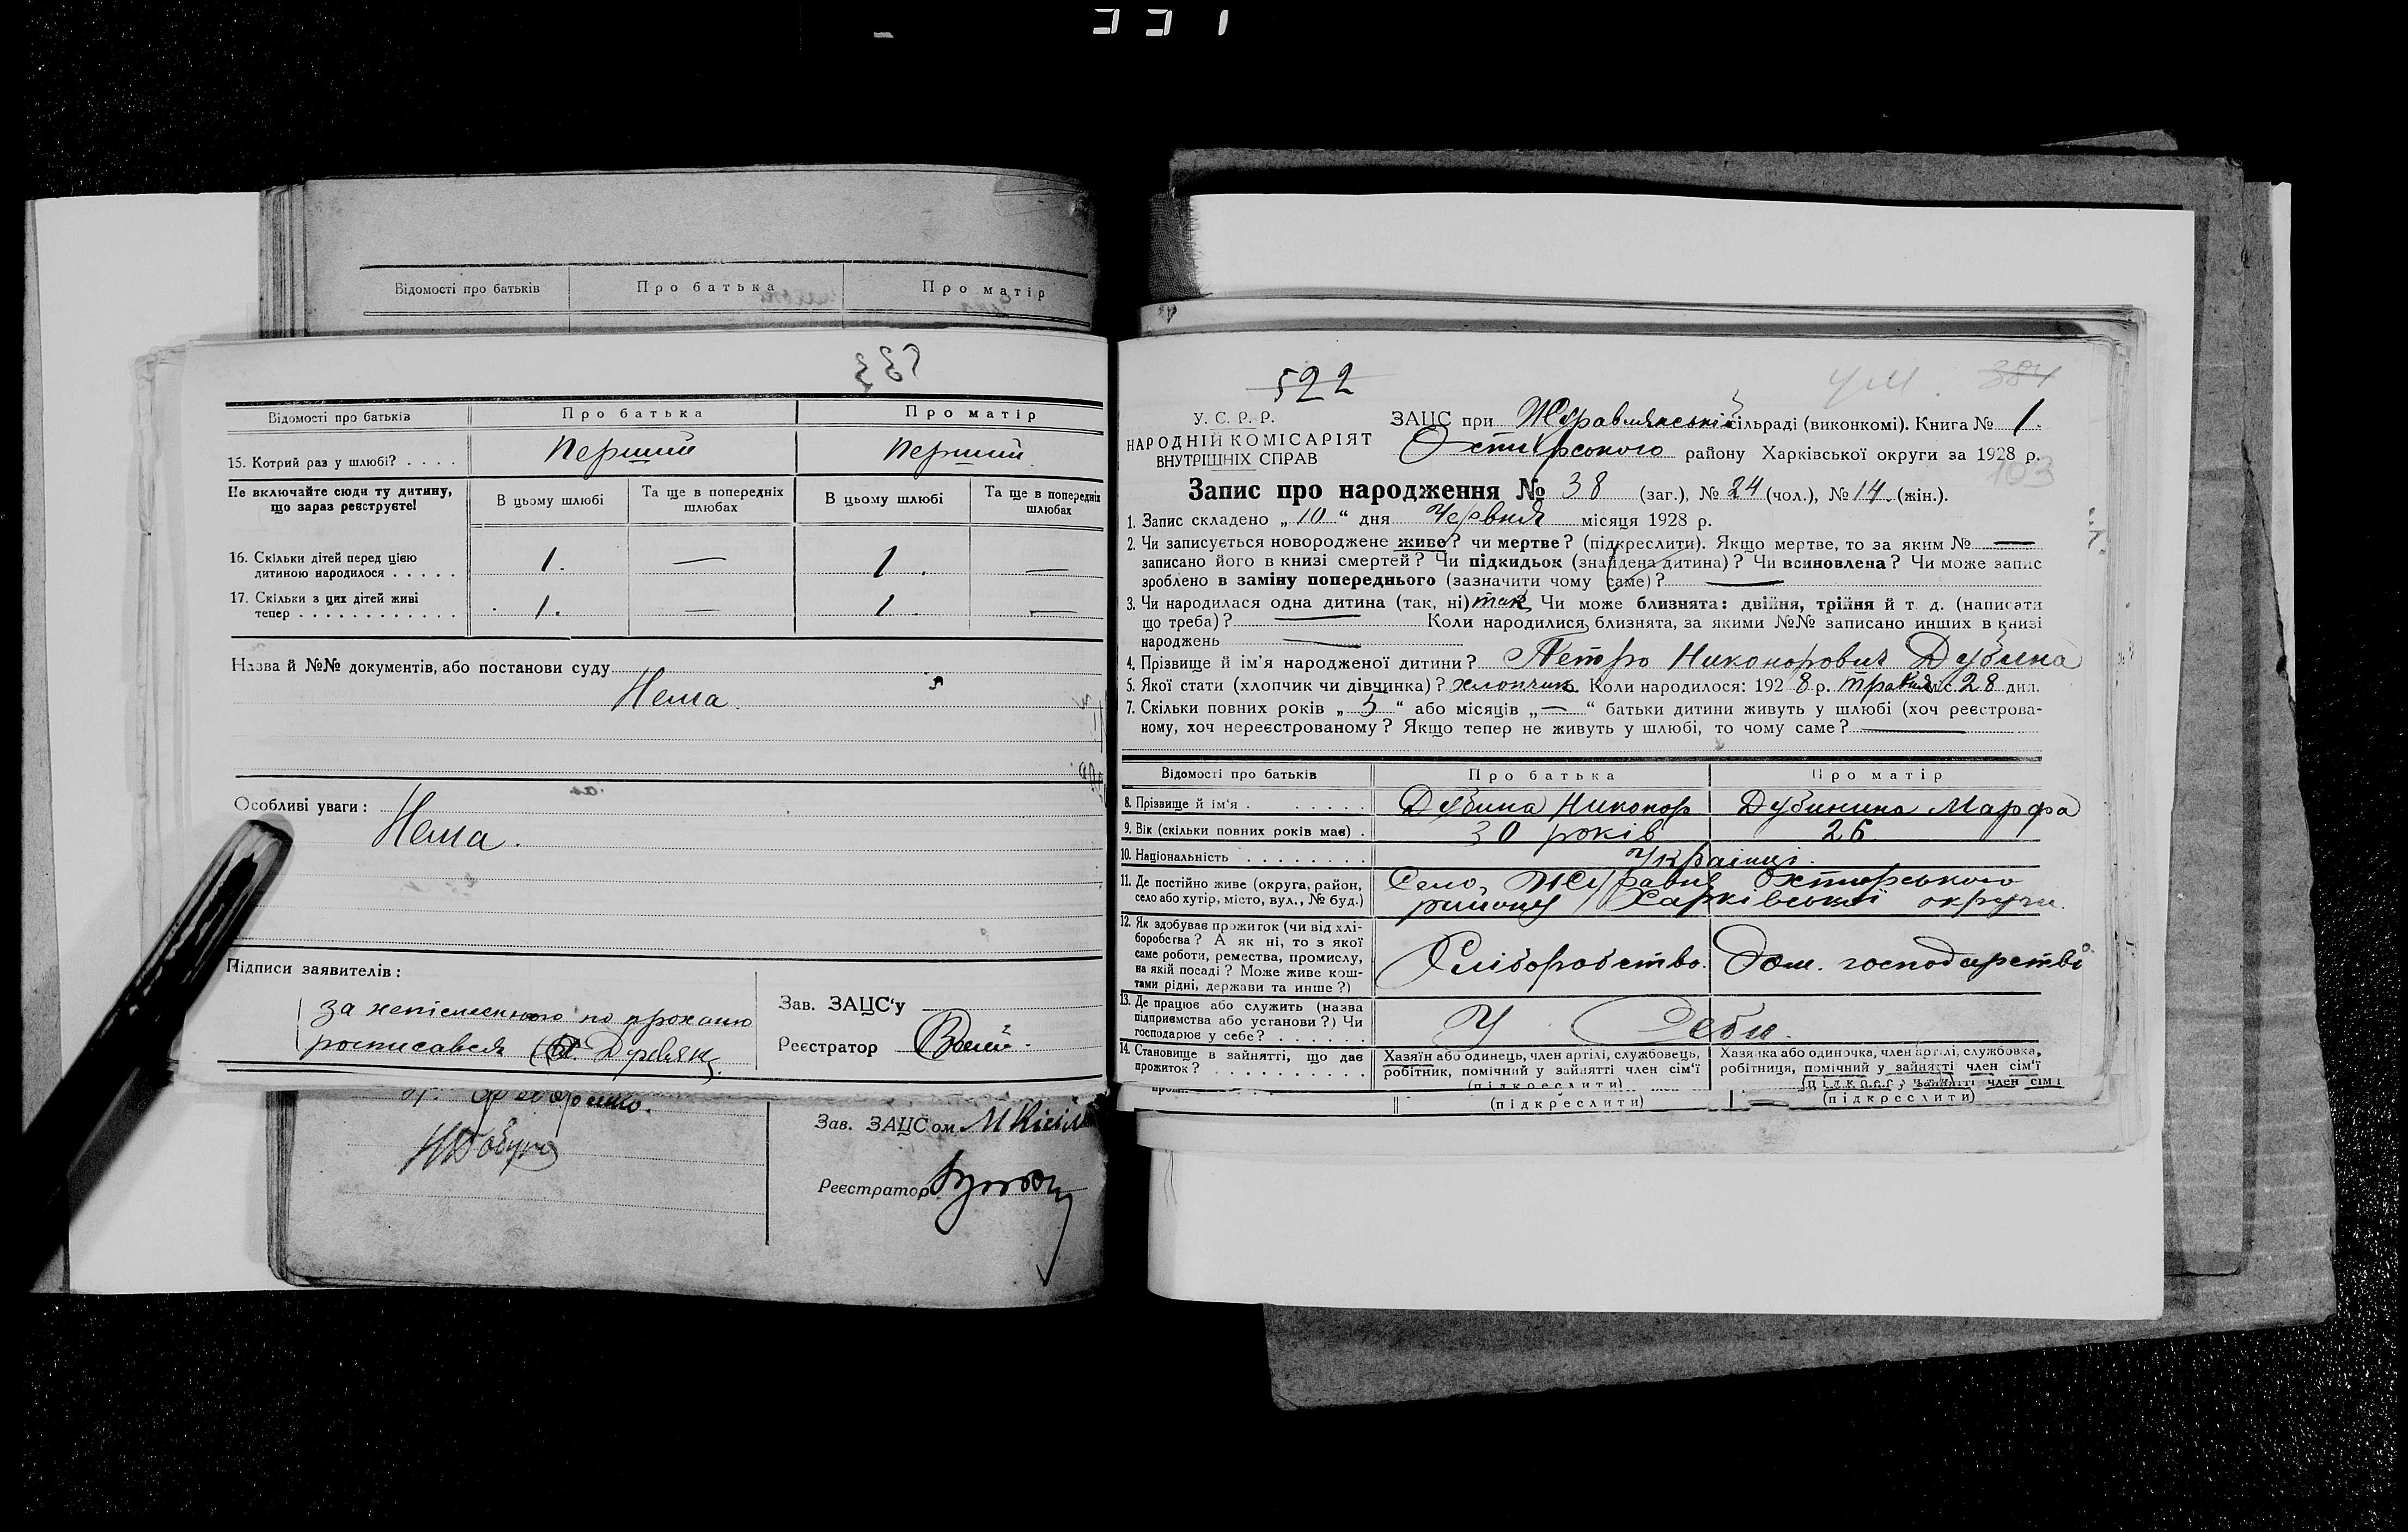 331
Відомості про батьків Про батька Про матір
Відомості про батьків Про батька Про матір
15. Котрий раз у шлюбі? . . . . Перший Перший
Не включайте сюди ту дитину, що зараз реєструєте!
В цьому шлюбі Та ще в попередніх шлюбах В цьому шлюбі Та ще в попередніх шлюбах
16. Скільки дітей перед цією
дитиною народилося . . . . . 1. — 1. —
17. Скільки з цих дітей живі
тепер . . . . . . . . . . . . 1. — 1 —
Назва й №№ документів, або постанови суду
Нема.
Особливі уваги:
Нема.
Підписи заявителів:
за неписьменного по проханю
росписався
Зав. ЗАЦС'у
Реєстратор
Зав. ЗАЦСом
Реєстратор
522
384
У. С. Р. Р.
НАРОДНІЙ КОМІСАРІЯТ
ВНУТРІШНІХ СПРАВ
ЗАЦС при Журавлянській сільраді (виконкомі). Книга № 1.
району Харківської округи за 1928 р.
103
Запис про народження № 38 (заг.), № 24 (чол.), № 14. (жін.).
1. Запис складено „10“ дня Червня місяця 1928 р.
2. Чи записується новороджене живе? чи мертве? (підкреслити). Якщо мертве, то за яким № —
записано його в книзі смертей? Чи підкидьок (знайдена дитина)? Чи всиновлена? Чи може запис
зроблено в заміну попереднього (зазначити чому саме)? —
3. Чи народилася одна дитина (так, ні) так Чи може близнята: двійня, трійня й т. д. (написати
що треба)? — Коли народилися близнята, за якими №№ записано инших в книзі
народжень —
4. Прізвище й ім'я народженої дитини? Петро Никонорович Дубина
5. Якої стати (хлопчик чи дівчинка)? хлопчик. Коли народилося: 1928 р. травня міс. 28 дня.
7. Скільки повних років „5“ або місяців „—“ батьки дитини живуть у шлюбі (хоч реєстрова-
ному, хоч нереєстрованому? Якщо тепер не живуть у шлюбі, то чому саме? —
Відомості про батьків Про батька Про матір
8. Прізвище й ім'я . . . . . . Дубина Никонор Дубинина Марфа
9. Вік (скільки повних років має) . 30 років 26
10. Національність . . . . . . . . Українці.
11. Де постійно живе (округа, район,
село або хутір, місто, вул., № буд.)
Село Журавне Охтирського
району Харківської округи.
12. Як здобуває прожиток (чи від хлі-
боробства? А як ні, то з якої
саме роботи, ремества, промислу,
на якій посаді? Може живе кош-
тами рідні, держави та инше?)
Хліборобство. Дом. господарстві
13. Де працює або служить (назва
підприємства або установи?) Чи
господарює у себе? . . . . . .
У Себе.
14. Становище в зайнятті, що дає
прожиток? . . . . . . . . . .
Хазяїн або одинець, член артілі, службовець,
робітник, помічний у зайнятті член сім'ї
(підкреслити)
Хазяйка або одиночка, член артілі, службовка,
робітниця, помічний у зайнятті член сім'ї
(підкреслити)
(підкреслити) (підкреслити)